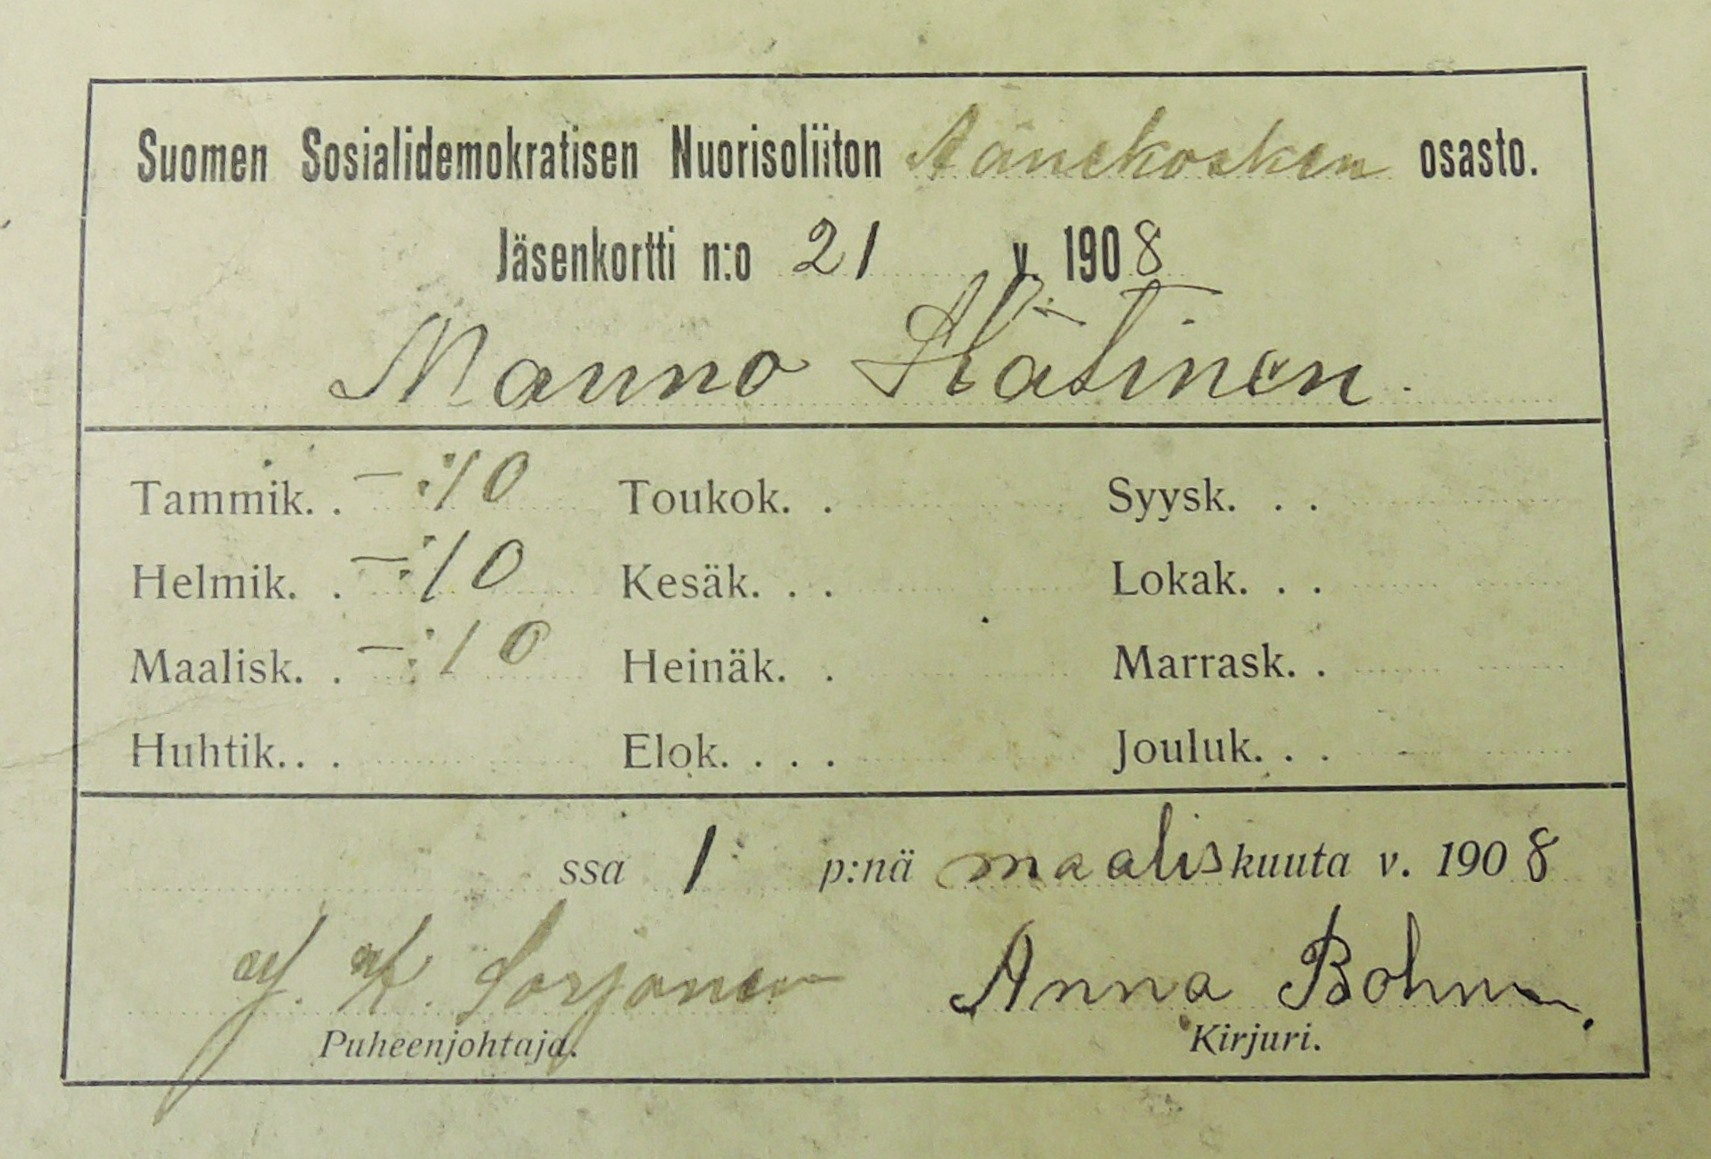 Suomen Sosialidemokratisen Nuorisoliiton Äänekosken osasto.
Jäsenkortti n:o 21 v. 1908
Manno Hätinen.
Tammik. . —:10 Toukok. . Syysk. . .
Helmik. . —:10 Kesäk. . . Lokak. . .
Maalisk. . —:10 Heinäk. . Marrask. .
Huhtik. . . Elok. . . . Jouluk. . .
ssa 1 p:nä maaliskuuta v. 1908
Sorjonen Anna Bohm
Puheenjohtaja. Kirjuri.